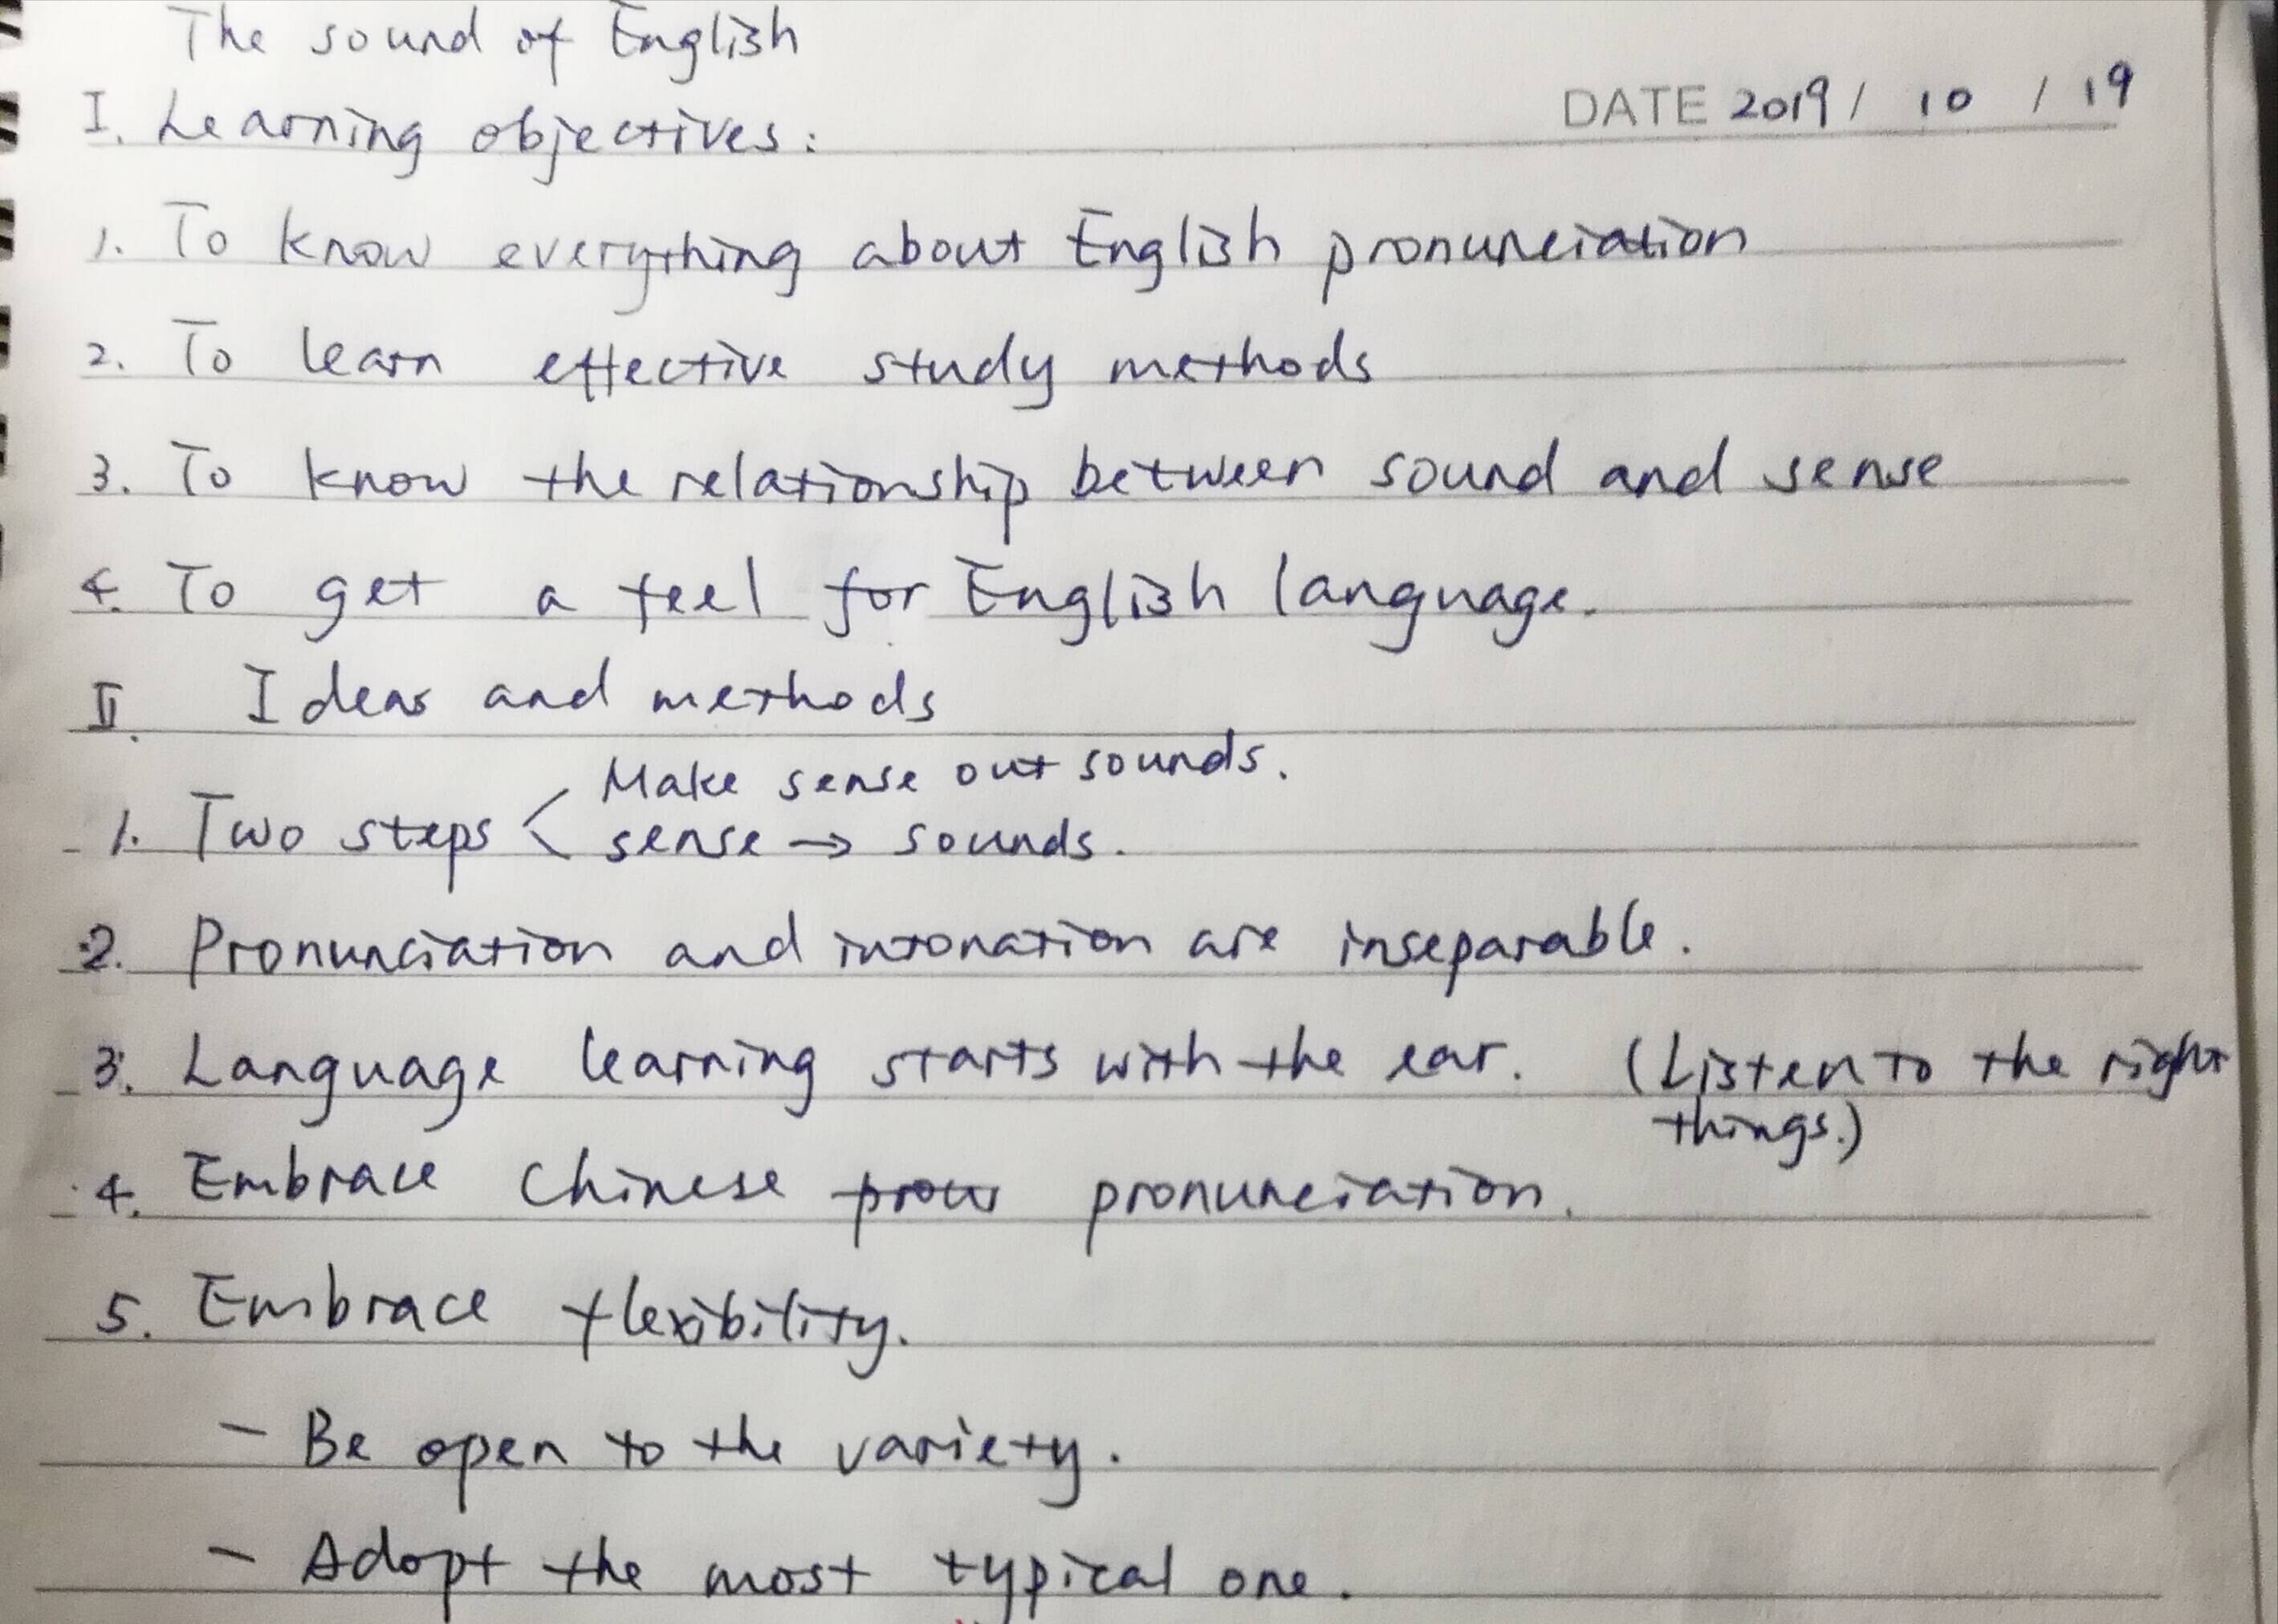 The sound of English
I. Learning objectives:
DATE 2019 / 10 / 19
1. To know everything about English pronunciation
2. To learn effective study methods
3. To know the relationship between sound and sense
4. To get a feel for English language.
II. Ideas and methods
Make sense out sounds.
1. Two steps < sense → sounds.
2. Pronunciation and intonation are inseparable.
3. Language learning starts with the ear. (Listen to the right
things.)
4. Embrace Chinese pronunciation.
5. Embrace flexibility.
- Be open to the variety.
- Adopt the most typical one.